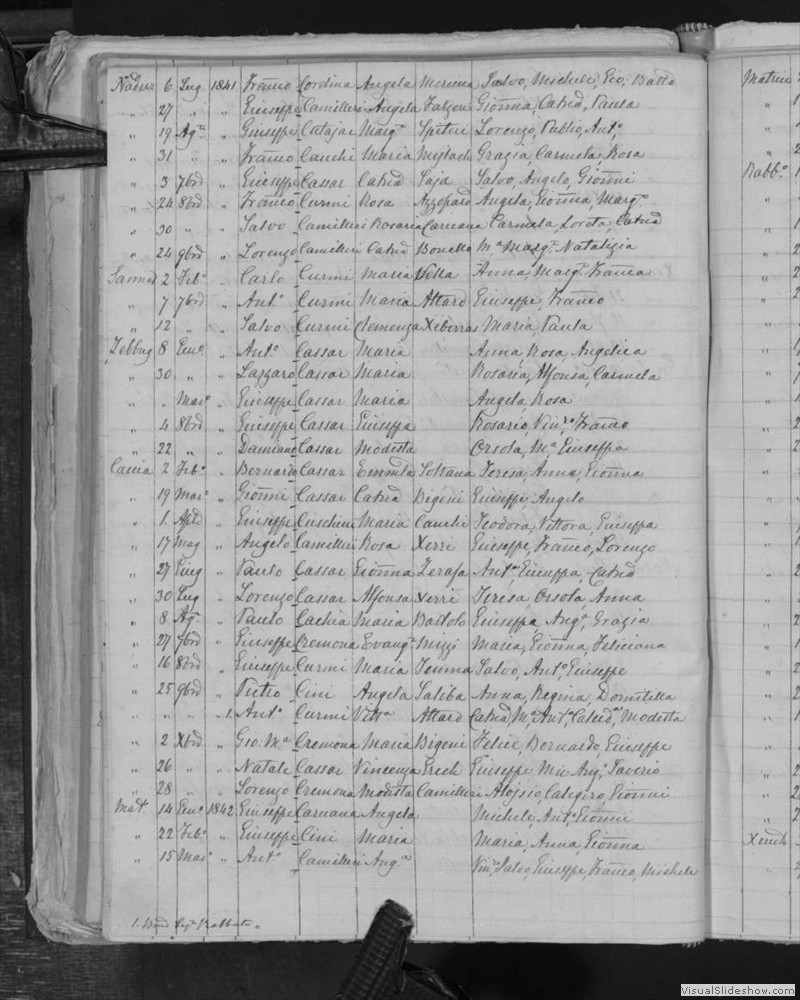 Nadur 6 Lug. 1841 Franco Cordina Angela Micino Salvo, Michele, Gio: Batta
" 27 " " Giuseppe Camilleri Angela Falzon Gionna, Catnd, Paula
" 19 Ag.to " Giuseppe Catajar Marg.a Spiteri Lorenzo, Publio, Ant.o
" 31 " " Franco Cauchi Maria Grazia, Carmela, Rosa
" 3 7bre " Giuseppe Cassar Catnd Saja Salvo, Angelo, Gionni
" 24 8bre " Franco Curmi Rosa Azzopard Angela, Gionna, Marg.a
" 30 " " Salvo Camilleri Rosaria Caruana Carmela, Loreta, Catnd
" 24 9bre " Lorenzo Camilleri Catnd Bonello M.a Marg.a Natalizia
Sannat 2 Feb.o " Carlo Curmi Maria Vella Anna, Marg.a Franca
" 7 7bre " Ant.o Curmi Maria Attard Giuseppe, Franco
" 12 " " Salvo Curmi Clemenza Xiberras Maria, Paula
Zebbug 8 Gen.o " Ant.o Cassar Maria Anna, Rosa Angelica
" 30 " " Lazzaro Cassar Maria Rosaria, Alfonsa, Carmela
" " Mar.o " Giuseppe Cassar Maria Angela, Rosa
" 4 8bre " Giuseppe Cassar Giuseppa Rosario, Vin.zo Franco
" 22 " " Damiano Cassar Modesta Orsola, M.a Giuseppa
Caccia 2 Feb.o " Bernardo Cassar Sultana Teresa, Anna, Gionna
" 19 Mar.o " Gionni Cassar Catnd Bigeni Giuseppe, Angelo
" 1. Aple " Giuseppe Cuschieri Maria Cauchi Teodora, Vittora, Giuseppa
" 17 Mag " Angelo Camilleri Rosa Xerri Giuseppe, Franco, Lorenzo
" 27 Giug " Paulo Cassar Gionna Zerafa Ant.a Giuseppa, Catnd
" 30 Lug " Lorenzo Cassar Alfonsa Xerri Teresa, Orsola, Anna
" 8 Ag.to " Paulo Cachia Maria Bartolo Giuseppa Ang.a, Grazia
" 27 7bre " Giuseppe Cremona Evang.a Mizzi Maria, Gionna, Feliciana
" 16 8bre " Giuseppe Curmi Maria Salvo, Ant.o Giuseppe
" 25 9bre " Pietro Cini Angela Saliba Anna, Regina, Domitilla
" " " " 1. Ant.o Curmi Vitt.a Attard Catnd, M.a Ant.a Modesta
" 2 Xbre " Gio: M.a Cremona Maria Bigeni Felice Bernardo, Giuseppe
" 26 " " Natale Cassar Vincenza Grech Giuseppe, Mic Ang.o Saverio
" 28 " " Lorenzo Cremona Modesta Camilleri Alojsio, Calogiro, Gionni
Mad.a 14 Gen.o 1842 Giuseppe Caruana Angela Michele, Ant.o Gionni
" 22 Feb.o " Giuseppe Cini Maria Maria, Anna, Gionna
" 15 Mar.o " Ant.o Camilleri Ang.a Vin.zo Salvo, Giuseppe, Franco, Michele
Matrice
Rabb.o
VisualSlideshow.com